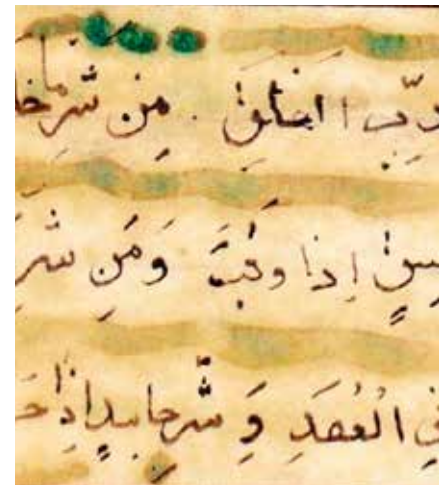 رَبِّ الفلَقِ . مِن شَرِّ ما خلَ
سِقٍ اِذا وقَبَ وَمِن شَرِّ
فِي الْعُقَدِ وَ شَّرِ حاسِدٍ اِذا حَ